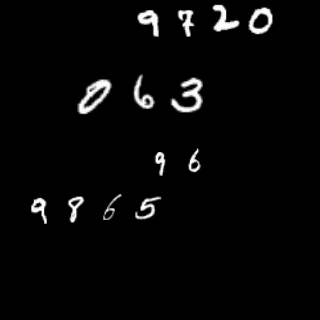 9720
063
96
9865